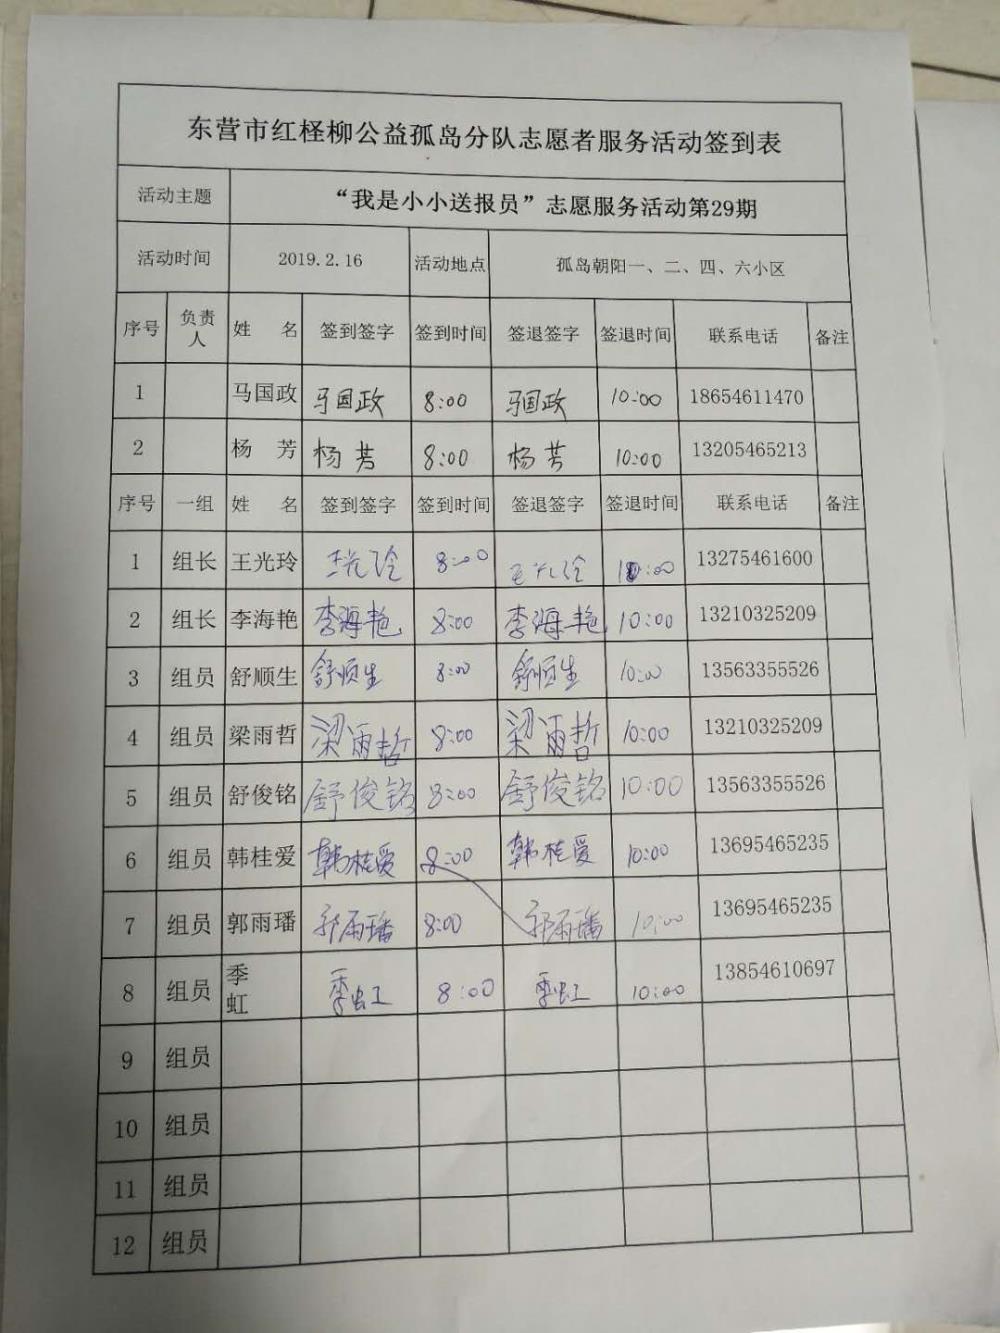 东营市红柽柳公益孤岛分队志愿者服务活动签到表
活动主题 “我是小小送报员”志愿服务活动第29期
活动时间 2019.2.16 活动地点 孤岛朝阳一、二、四、六小区
序号 负责人 姓 名 签到签字 签到时间 签退签字 签退时间 联系电话 备注
1 马国政 马国政 8:00 马国政 10:00 18654611470
2 杨 芳 杨芳 8:00 杨芳 10:00 13205465213
序号 一组 姓 名 签到签字 签到时间 签退签字 签退时间 联系电话 备注
1 组长 王光玲 王光玲 8:00 王光玲 10:00 13275461600
2 组长 李海艳 李海艳 8:00 李海艳 10:00 13210325209
3 组员 舒顺生 舒顺生 8:00 舒顺生 10:00 13563355526
4 组员 梁雨哲 梁雨哲 8:00 梁雨哲 10:00 13210325209
5 组员 舒俊铭 舒俊铭 8:00 舒俊铭 10:00 13563355526
6 组员 韩桂爱 韩桂爱 8:00 韩桂爱 10:00 13695465235
7 组员 郭雨璠 郭雨璠 8:00 郭雨璠 10:00 13695465235
8 组员 季虹 季虹 8:00 季虹 10:00 13854610697
9 组员
10 组员
11 组员
12 组员